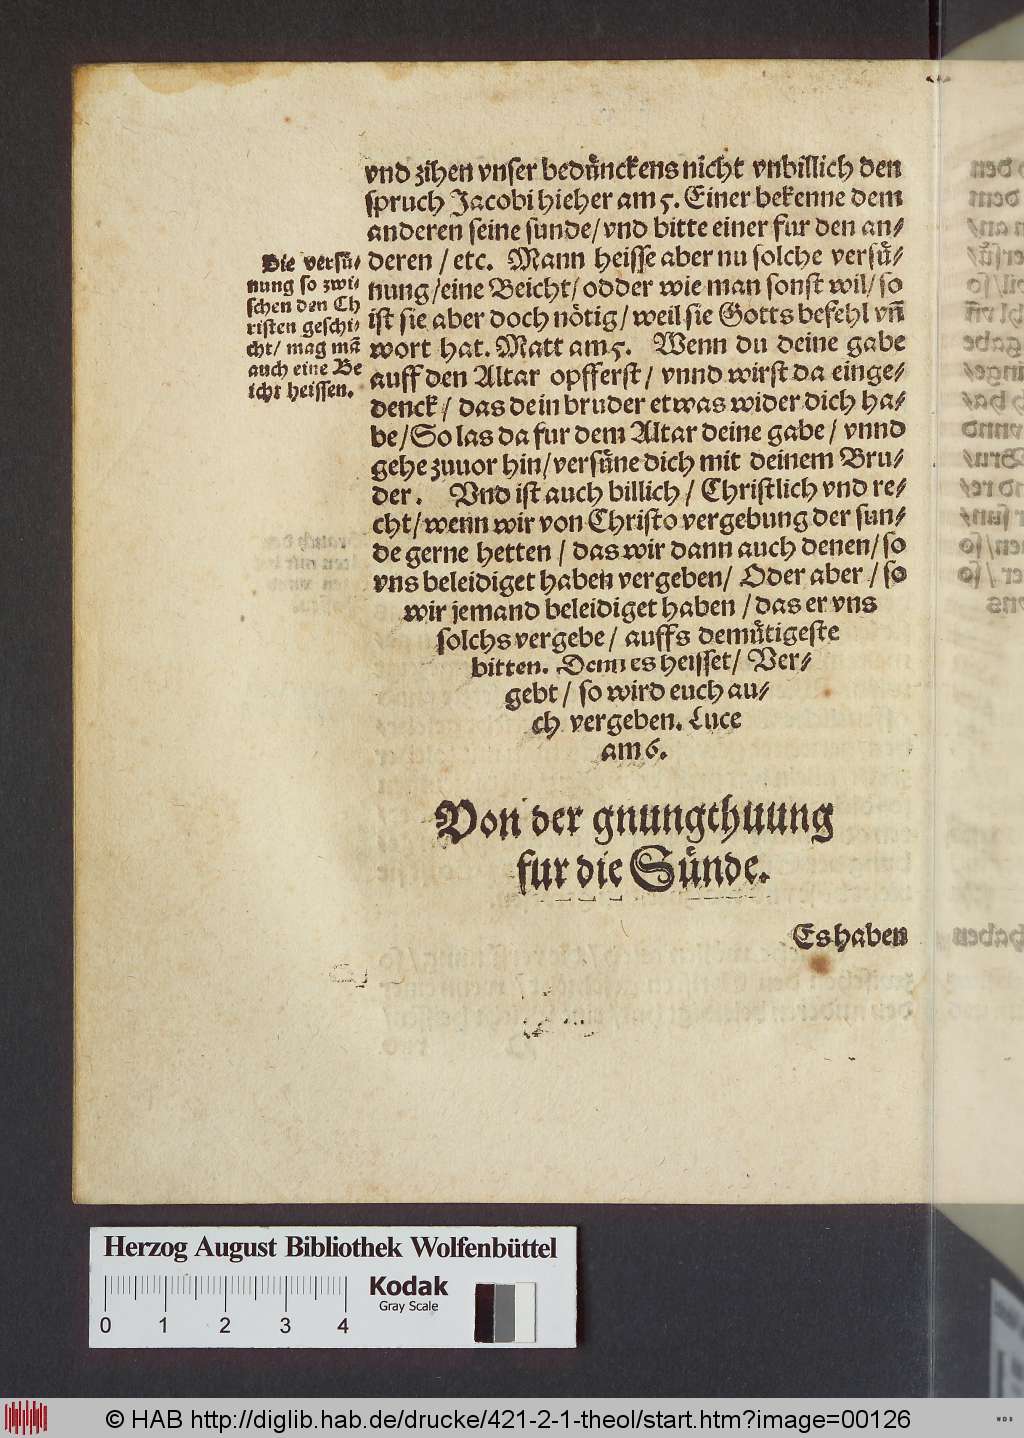 vnd zihen vnser bedůnckens nicht vnbillich den
spruch Jacobi hieher am 5. Einer bekenne dem
anderen seine sunde/vnd bitte einer fur den an⸗
deren / etc. Mann heisse aber nu solche versů⸗
nung/eine Beicht/ odder wie man sonst wil/ so
ist sie aber doch nötig/ weil sie Gotts befehl vñ
wort hat. Matt am 5. Wenn du deine gabe
auff den Altar opfferst/ vnnd wirst da einge⸗
denck / das dein bruder etwas wider dich ha⸗
be/So las da fur dem Altar deine gabe/ vnnd
gehe zuuor hin/versůne dich mit deinem Bru⸗
der. Vnd ist auch billich / Christlich vnd re⸗
cht/wenn wir von Christo vergebung der sun⸗
de gerne hetten / das wir dann auch denen/ so
vns beleidiget haben vergeben/ Oder aber / so
wir jemand beleidiget haben / das er vns
solchs vergebe/ auffs demůtigeste
bitten. Denn es heisset/ Ver⸗
gebt / so wird euch au⸗
ch vergeben. Luce
am 6.
Die versů⸗
nung so zwi⸗
schen den Ch
risten geschi⸗
cht/ mag mã
auch eine Be
icht heissen.
Von der gnungthuung
fur die Sůnde.
Es haben
Herzog August Bibliothek Wolfenbüttel
0 1 2 3 4
Kodak
Gray Scale
© HAB http://diglib.hab.de/drucke/421-2-1-theol/start.htm?image=00126